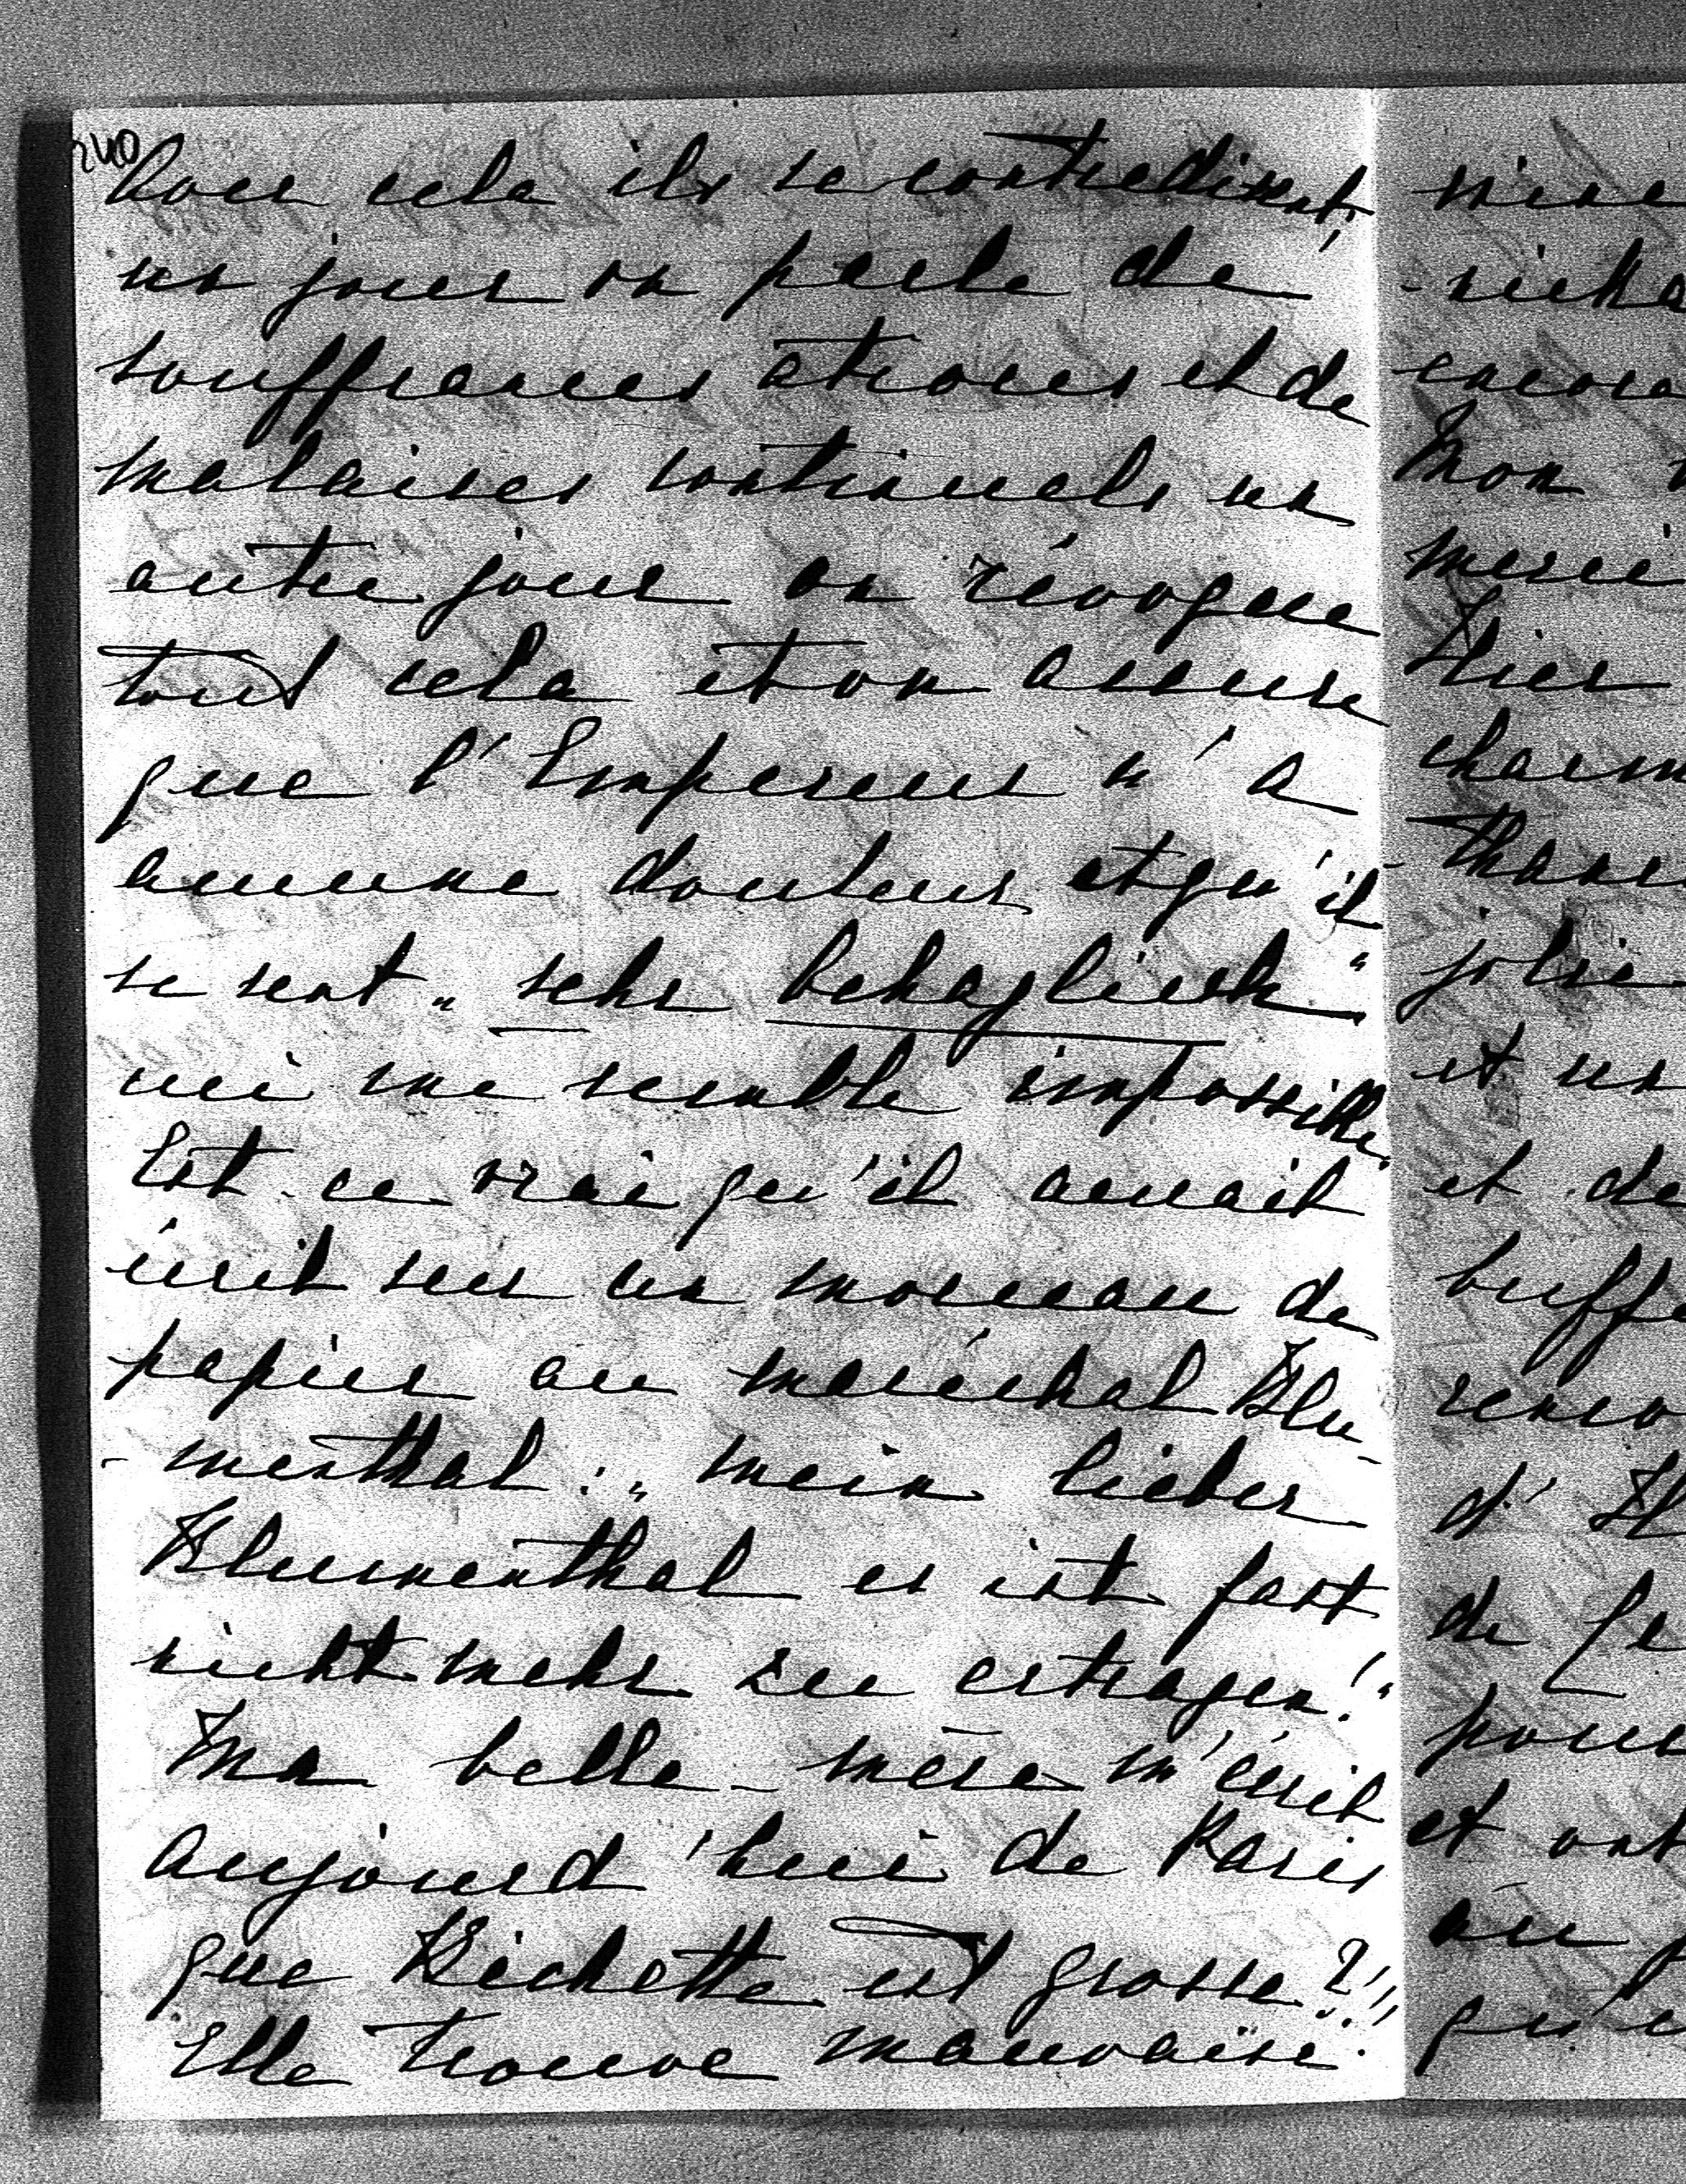 240
Pour cela ils se contredisent,
un jour on parle de
souffrances atroces et de
malaises continuels un
autre jour on révoque
tout cela et on assure
que l'Empereur n'a
aucune douleur et qu'il
se sent „sehr behaglich"
ceci me semble impossible.
Est-ce vrai qu'il aurait
écrit sur un morceau de
papier au maréchal Blu-
-menthal: „mein lieber
Blumenthal es ist fast
nicht mehr zu ertragen!"
Ma belle-mère m'écrit
aujourd'hui de Paris
que Bichette est grosse?!!!
Elle trouve mauvaise
-
encore
Mon
merci
Hier
jolie
et un
et de
d'
de
pour
et ont
au